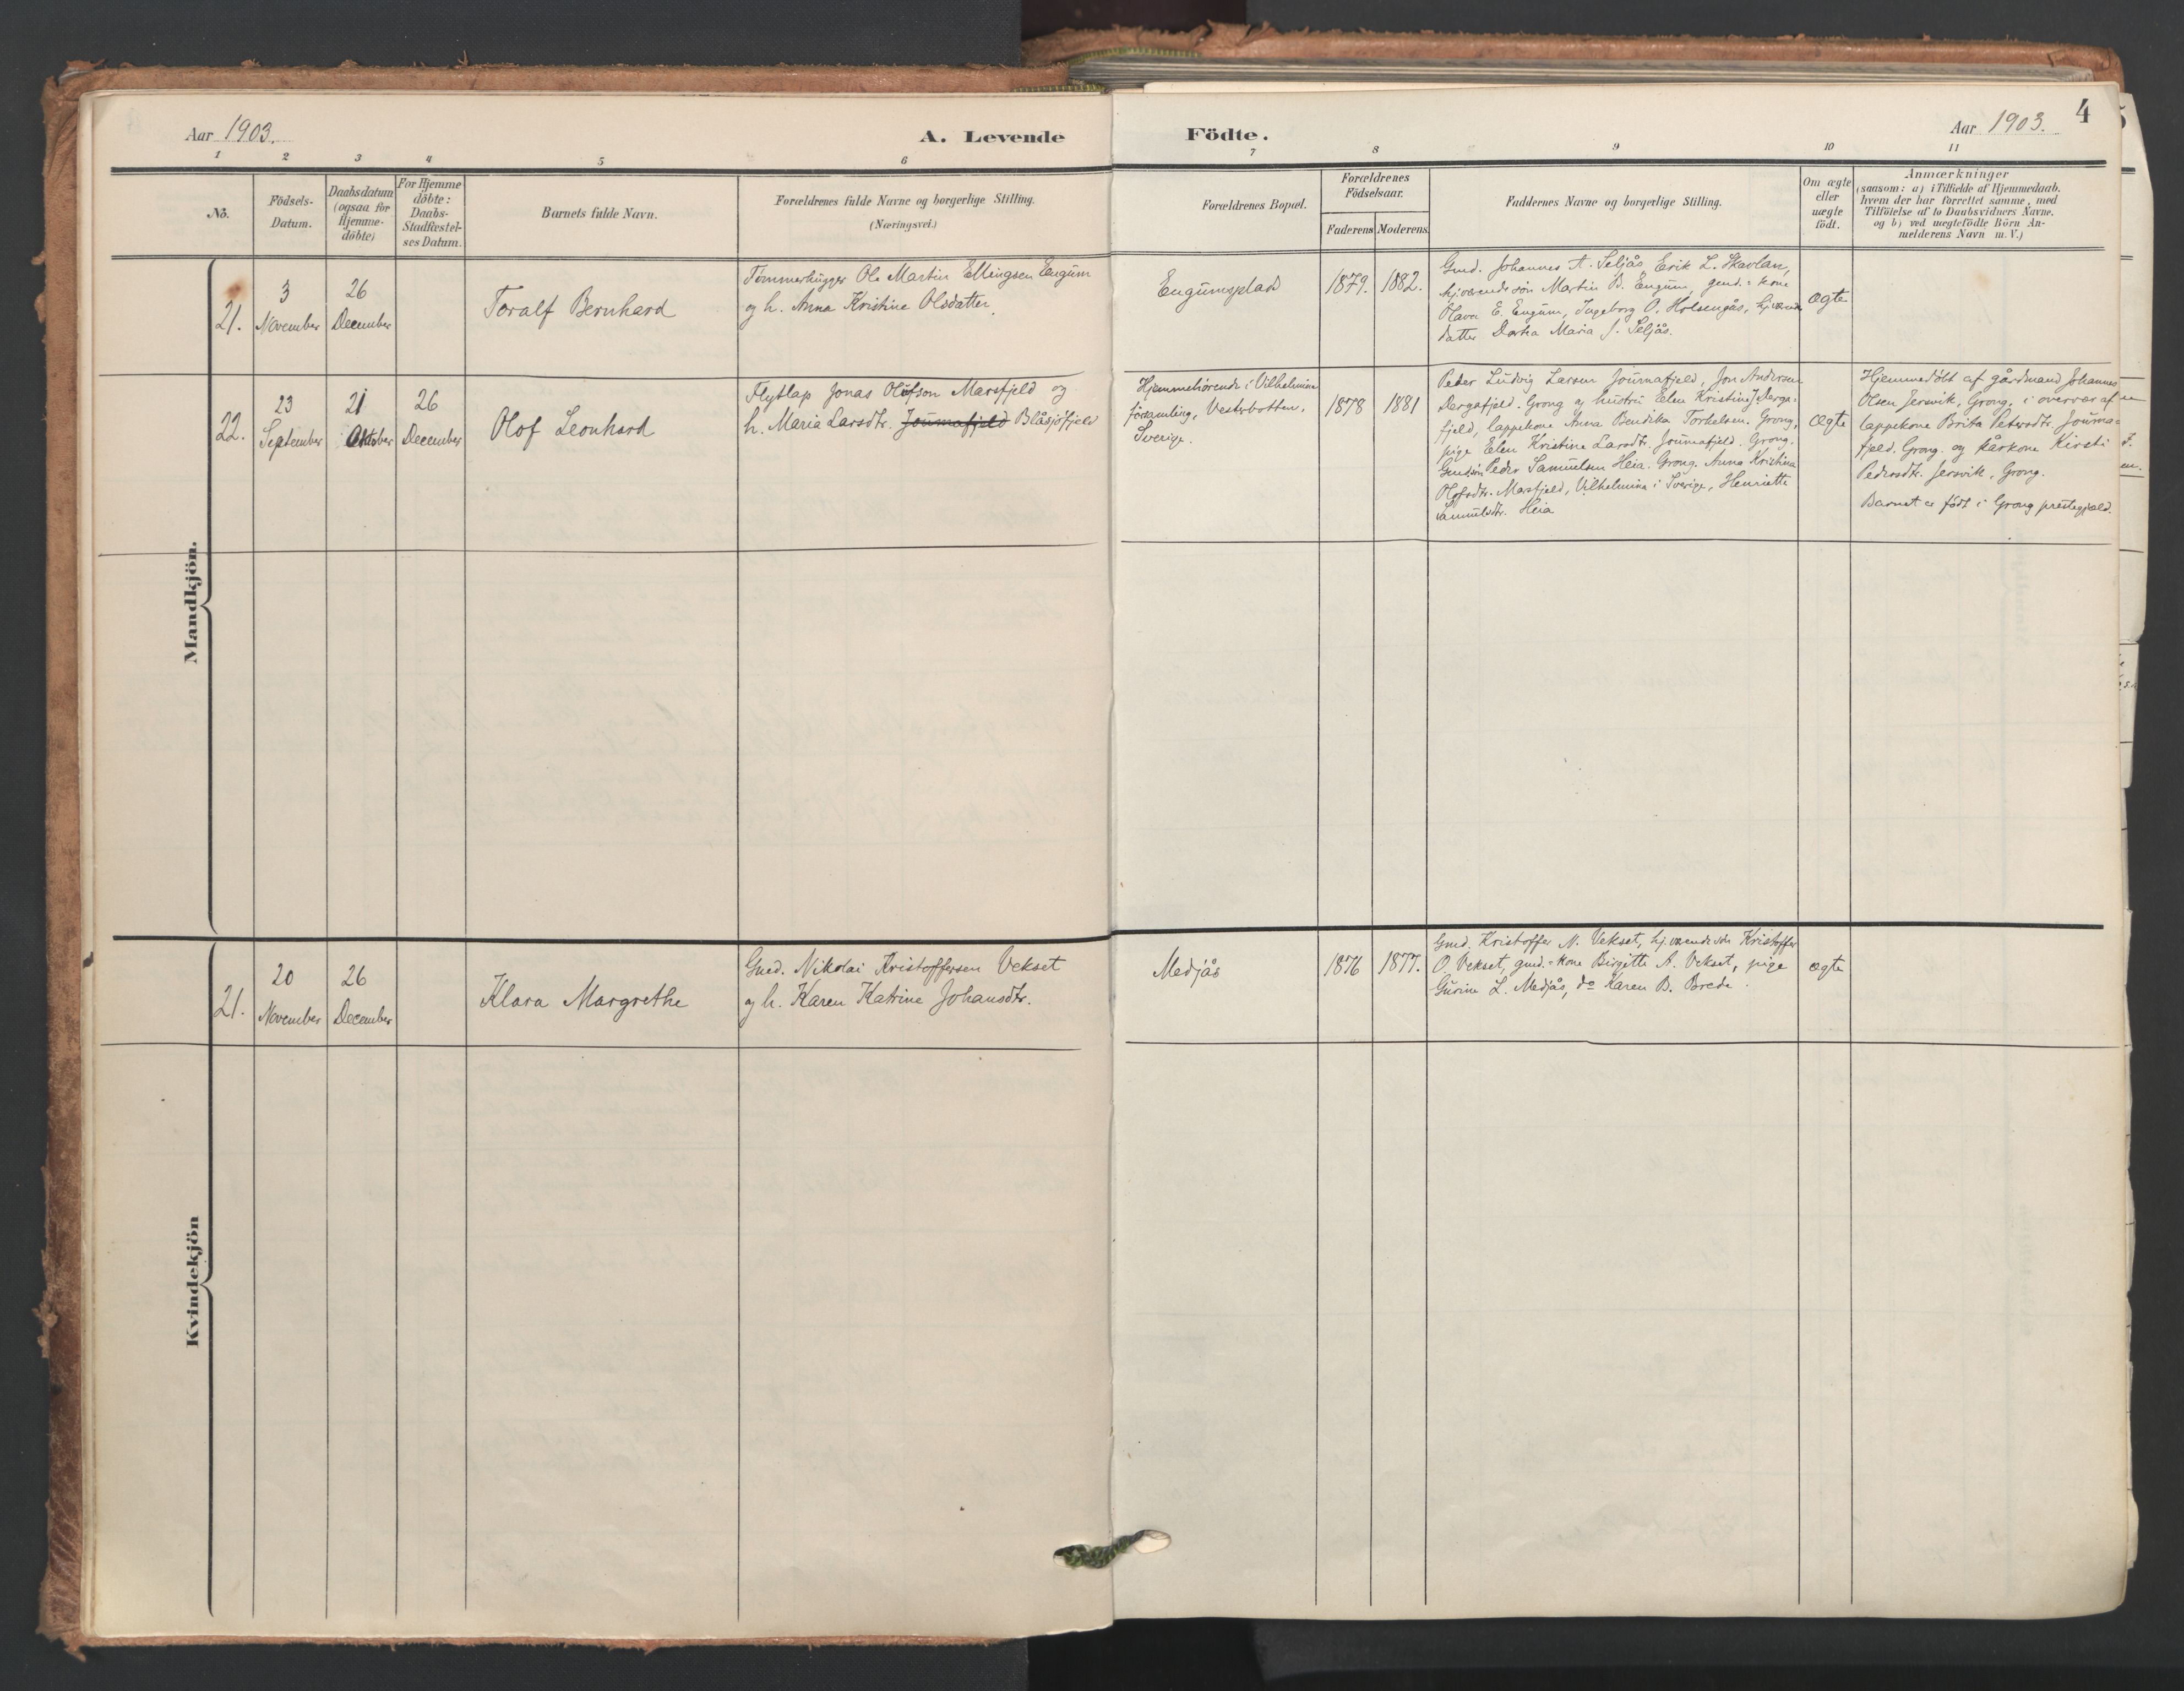 Aar 1903.
A. Levende
Födte.
Aar 1903.
4
1 2 3 4 5 6 7 8 9 10 11
No.
Födsels-
Datum.
Daabsdatum
(ogsaa for
Hjemme-
döbte)
For Hjemme
döbte:
Daabs-
Stadfæstel-
ses Datum.
Barnets fulde Navn.
Forældrenes fulde Navne og borgerlige Stilling.
(Næringsvei.)
Forældrenes Bopæl.
Forældrenes
Födselsaar.
Faderens
Moderens
Faddernes Navne og borgerlige Stilling.
Om ægte
eller
uægte
födt.
Anmærkninger
(saasom: a) i Tilfælde af Hjemmedaab.
hvem der har forrettet samme, med
Tilföielse af to Daabsvidners Navne.
og b) ved uægtefödte Börn An-
melderens Navn m.V.)
Mandkjön.
21.
3
November
26
December
Toralf Bernhard
Tømmerhugger Ole Martin Ellingsen Engum
og h. Anna Kristine Olsdatter.
Engumsplads
1879.
1882.
Gmd. Johannes A. Seljås, Erik L. Skavlan,
hj.værende søn Martin B. Engum, gmd.=kone
Olava E. Engum, Ingeborg O. Holsengås, hj.værende
datter Dortea Maria J. Seljås.
ægte
22.
23
September
21
Oktober
26
December
Olof Leonhard
Flytlap Jonas Olofson Marsfjeld og
h. Maria Larsdtr. Joumafjeld Blåsjöfjeld
Hjemmehørende i Vilhelmina
församling, Vesterbotten.
Sverige.
1878
1881
Peder Ludvig Larsen Joumafjeld, Jon Andersen
Dergafjeld. Grong og hustru Elen Kristine J. Derga-
fjeld, lappekone Anna Bendika Torkelsen. Grong,
pige Elen Kristine Larsdt. Joumafjeld. Grong.
Gmdsøn Peder Samuelsen Heia. Grong. Anna Kristina
Olofsdtr. Marsfjeld, Vilhelmina i Sverige, Henriette
Samuelsdtr. Heia
ægte
Hjemmedøbt af gårdmand Johannes
Olsen Jersvik, Grong, i overvær af
lappekone Brita Petersdtr. Jouma=
fjeld. Grong. og kårkone Kirsti
Pedersdtr. Jersvik, Grong.
Barnet er født i Grong prestegjæld.
Kvindekjön
21.
20
November
26
December
Klara Margrethe
Gmd. Nikolai Kristoffersen Vekset
og h. Karen Katrine Johansdtr.
Medjås
1876
1877.
Gmd. Kristoffer N. Vekset, hj.værende søn Kristoffer
O. Vekset, gmd.=kone Birgitte A. Vekset, pige
Gurine L. Medjås, do Karen B. Brede.
ægte